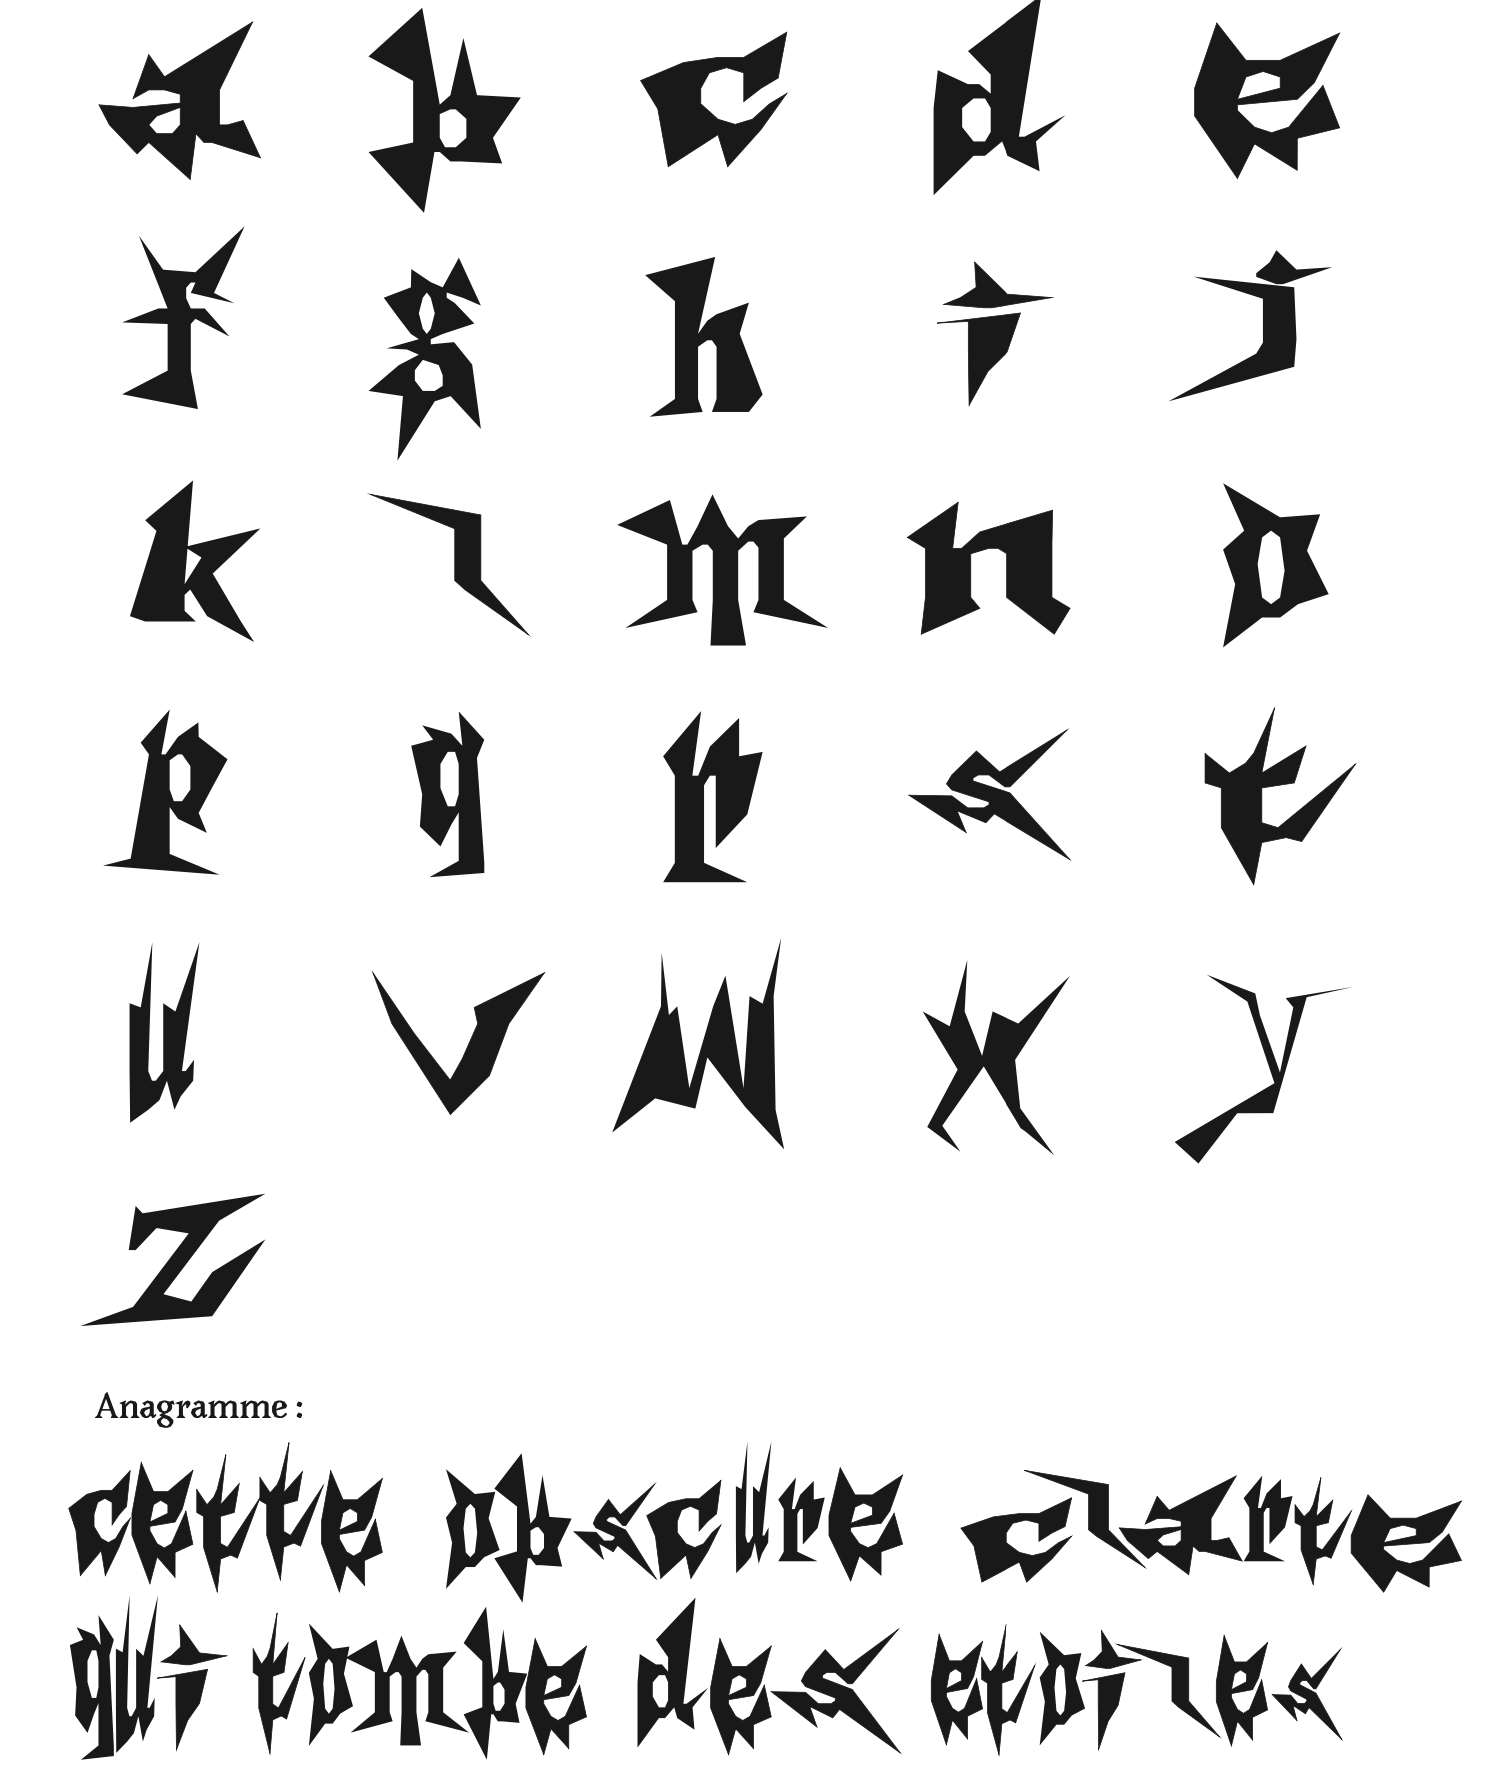 a b c d e
f g h i j
k l m n o
p q r s t
u v w x y
z
Anagramme :
cette obscure clarte
qui tombe des etoiles